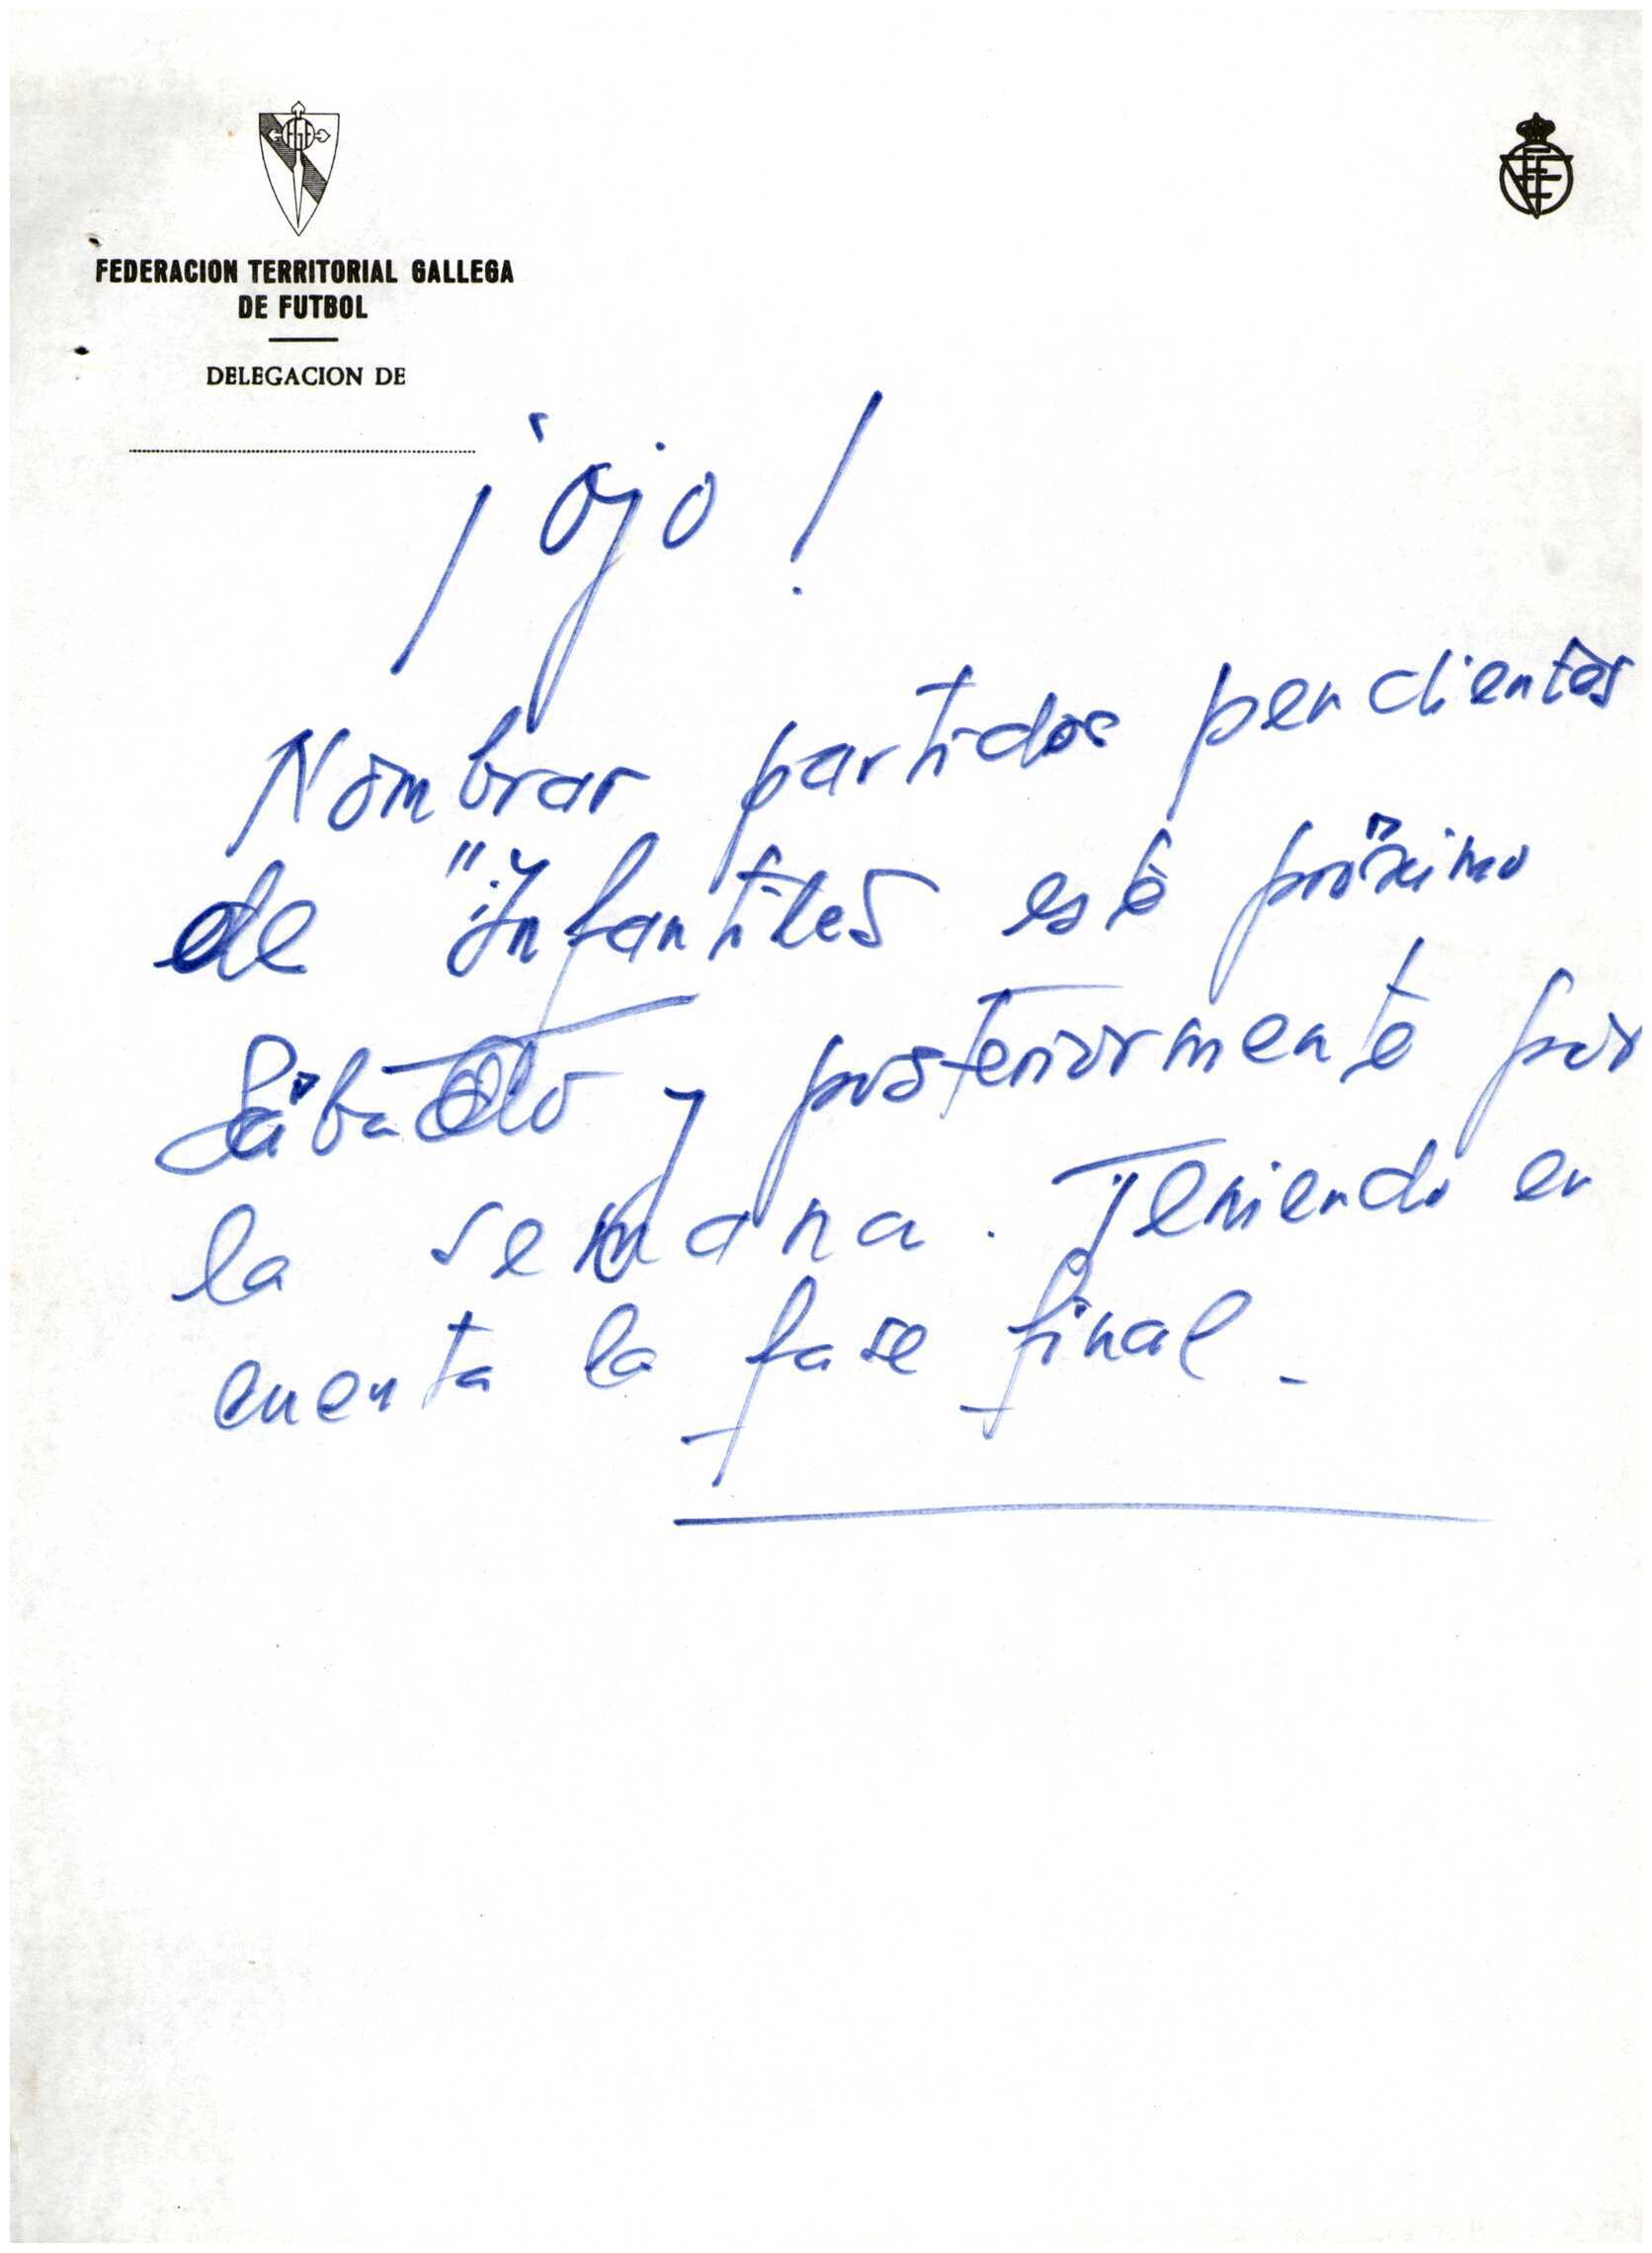 FGF
FEDERACION TERRITORIAL GALLEGA
DE FUTBOL
DELEGACION DE
¡ojo!
Nombrar partidos pendientes
de "Infantiles este próximo
Sábado y posteriormente por
la semana. Teniendo en
cuenta la fase final.